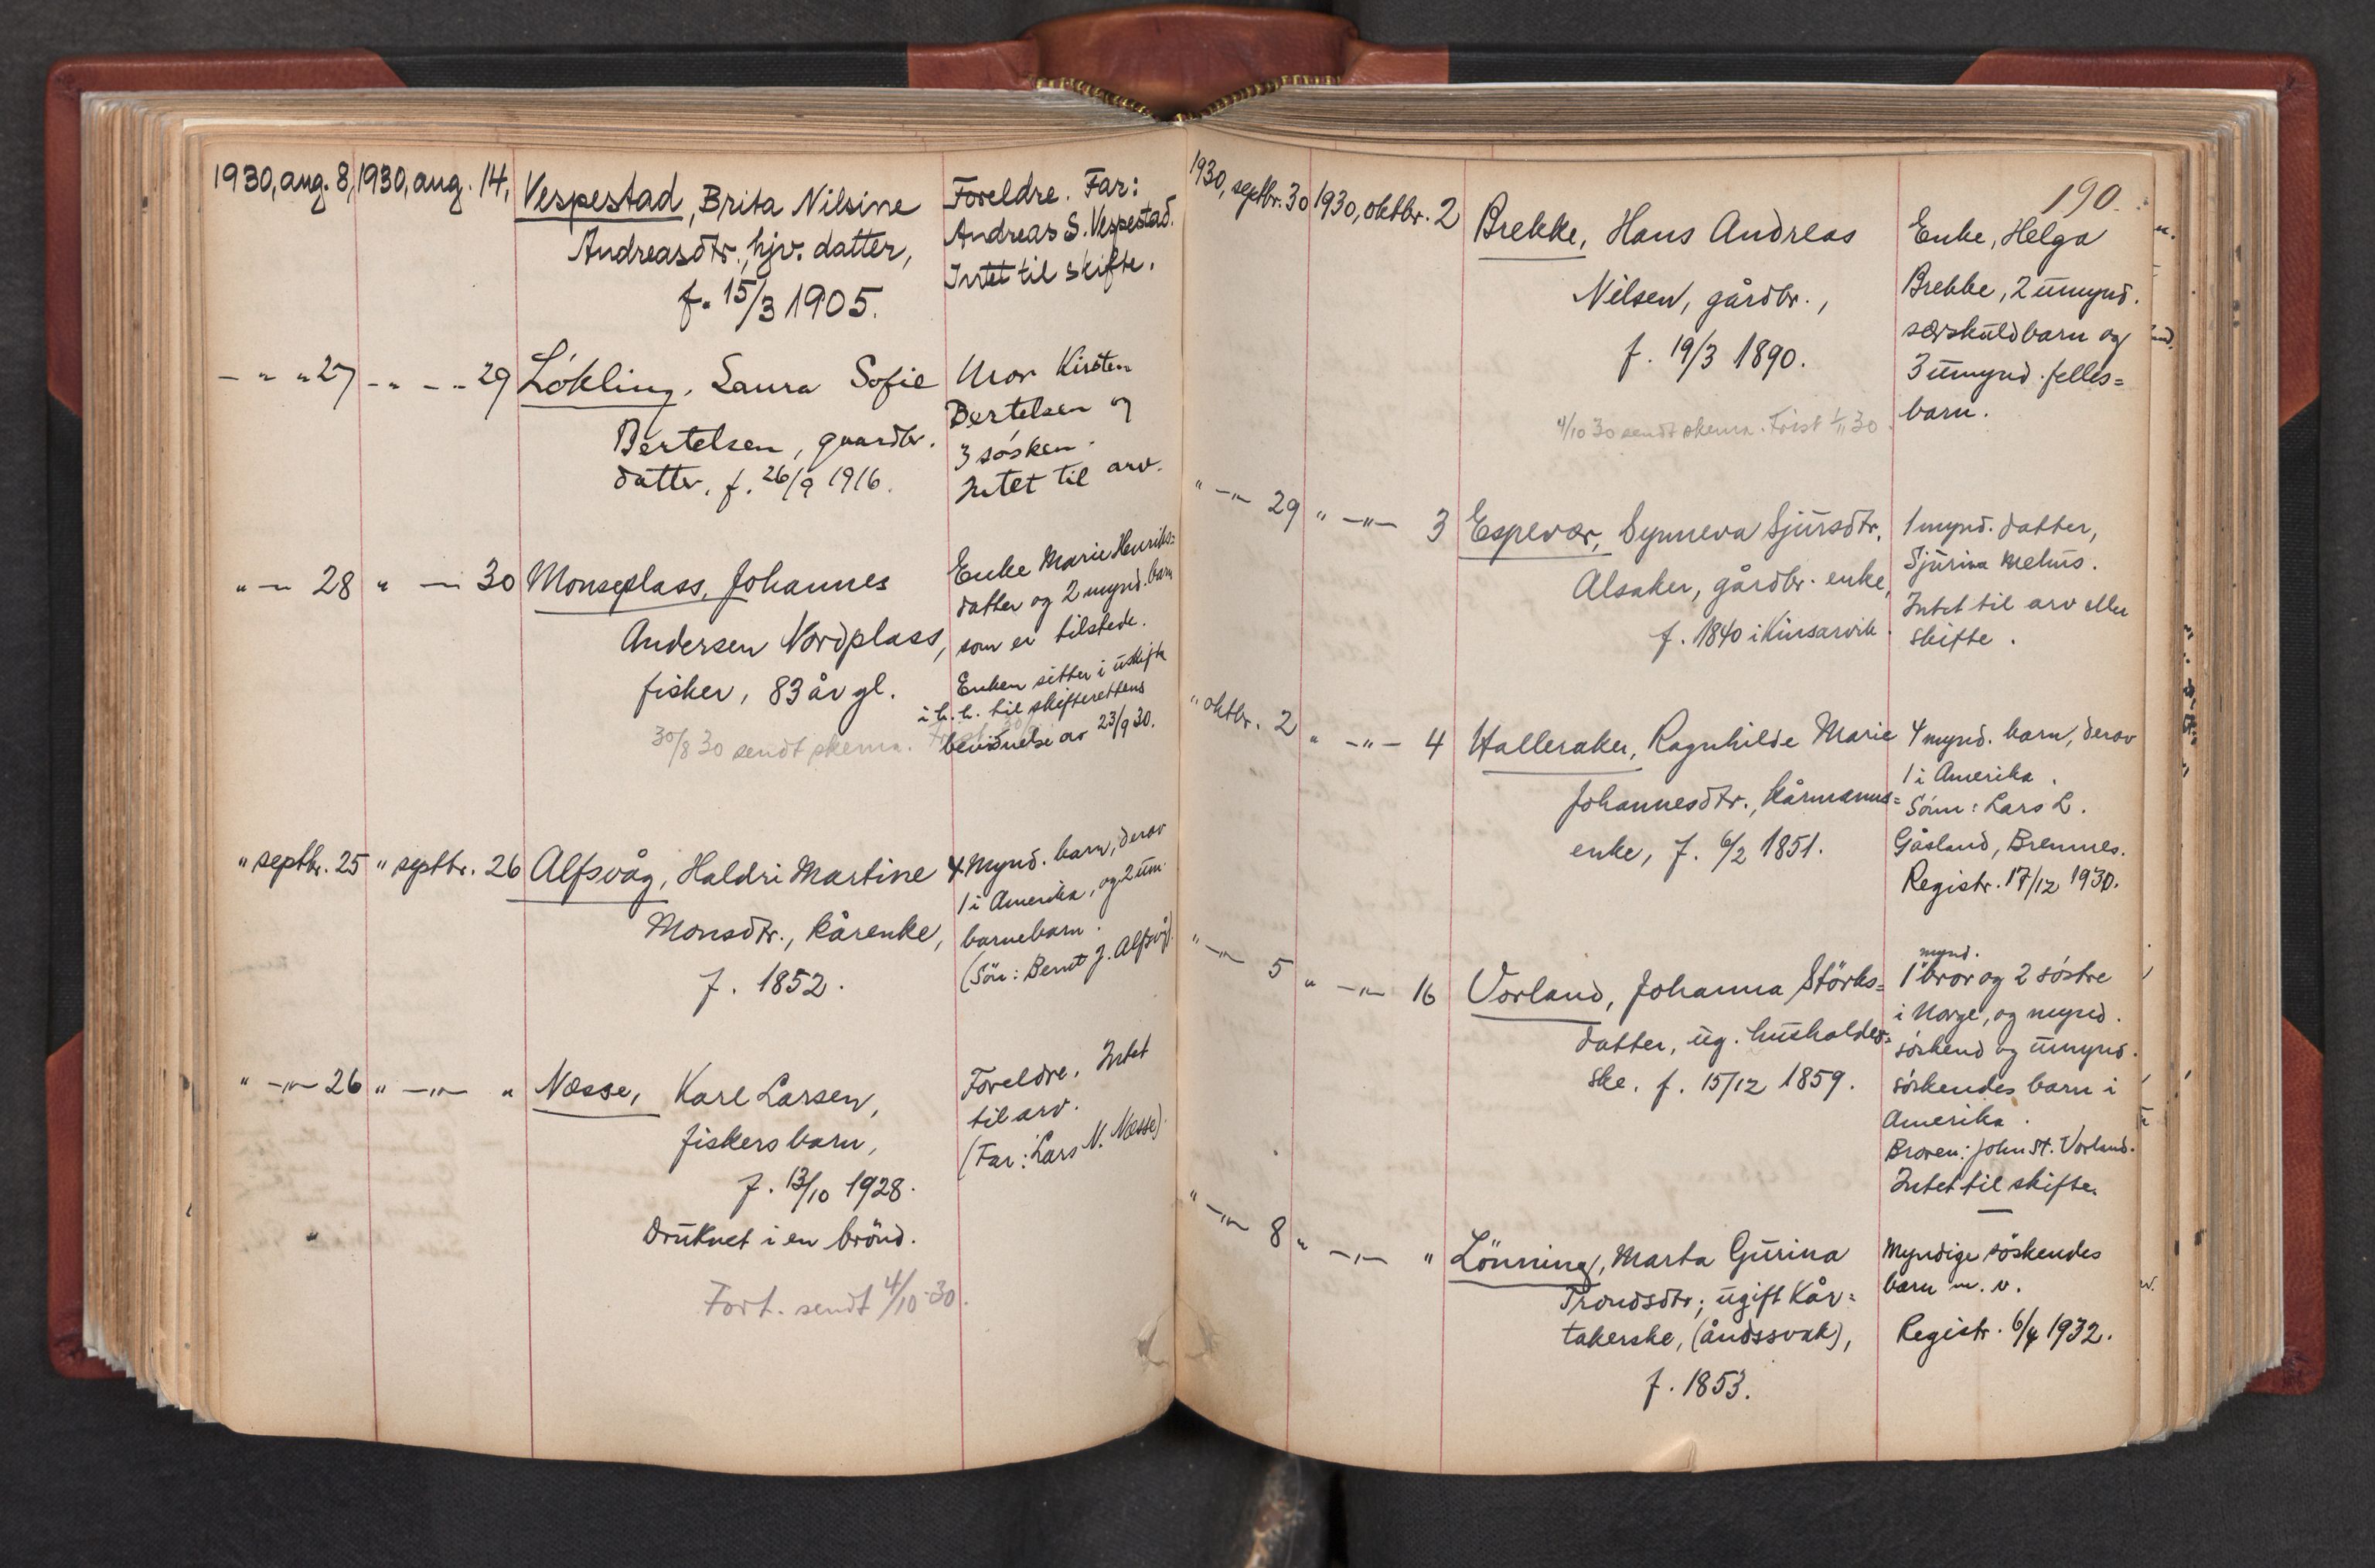 1930, aug. 8, 1930, aug. 14, Vespestad, Brita Nilsine
Andreasdtr., hjv. datter,
f. 15/3 1905.
Foreldre. Far:
Andreas S. Vespestad.
Intet til skifte.
— " " 27 — " — " 29 Lökling, Laura Sofie
Bertelsen, gaardbr.
datter, f. 26/9 1916.
Mor Kirsten
Bertelsen og
3 søsken.
Intet til arv.
" — " 28 " — " 30 Monseplass, Johannes
Andersen Nordplass,
fisker, 83 år gl.
30/8 30 sendt skema.
Enke Marie Henriks=
datter og 2 mynd. barn
som er tilstede.
Enken sitter i uskifte
i h. h. til skifterettens
bevidnelse av 23/9 30.
" septbr. 25 " septbr. 26 Alfsvåg, Haldri Martine
Monsdtr., kårenke,
f. 1852.
4 mynd. barn, derav
1 i Amerika, og 2 um.
barnebarn.
(Sön: Bernt J. Alfsvåg).
" —"— 26 " —"— " Næsse, Karl Larsen,
fiskers barn,
f. 13/10 1928.
Druknet i en brönd.
Fort. sendt 4/10-30.
Foreldre. Intet
til arv.
(Far: Lars N. Næsse).
190.
1930, septbr. 30 1930, oktbr. 2 Brekke, Hans Andreas
Nilsen, gårdbr.,
f. 19/3 1890.
4/10 30 sendt skema. Frist 1/11 30
Enke, Helga
Brekke, 2 umynd.
særskuldbarn og
3 umynd. felles=
barn.
" —"— 29 " —"— 3 Espevær, Synneva Sjursdtr.
Alsaker, gårdbr. enke,
f. 1840 i Kinsarvik.
1 mynd. datter,
Sjurina Mehus.
Intet til arv eller
skifte.
" oktbr. 2 " —"— 4 Halleraker, Ragnhilde Marie
Johannesdtr., kårmanns=
enke, f. 6/2 1851.
4 mynd. barn, derav
1 i Amerika.
Sönn: Lars L.
Gåsland, Bremnes.
Registr. 17/12 1930.
" —"— 5 " —"— 16 Vorland, Johanna Störks=
datter, ug. husholder=
ske. f. 15/12 1859.
mynd.
1 bror og 2 söstre
i Norge, og mynd.
söskend og umynd.
söskendes barn i
Amerika.
Broren: John St. Vorland.
Intet til skifte.
" —"— 8 " —"— " Lönning, Marta Gurina
Trondsdtr; ugift kår=
takerske, (åndssvak),
f. 1853.
Myndige söskendes
barn m. v.
Registr. 6/4 1932.